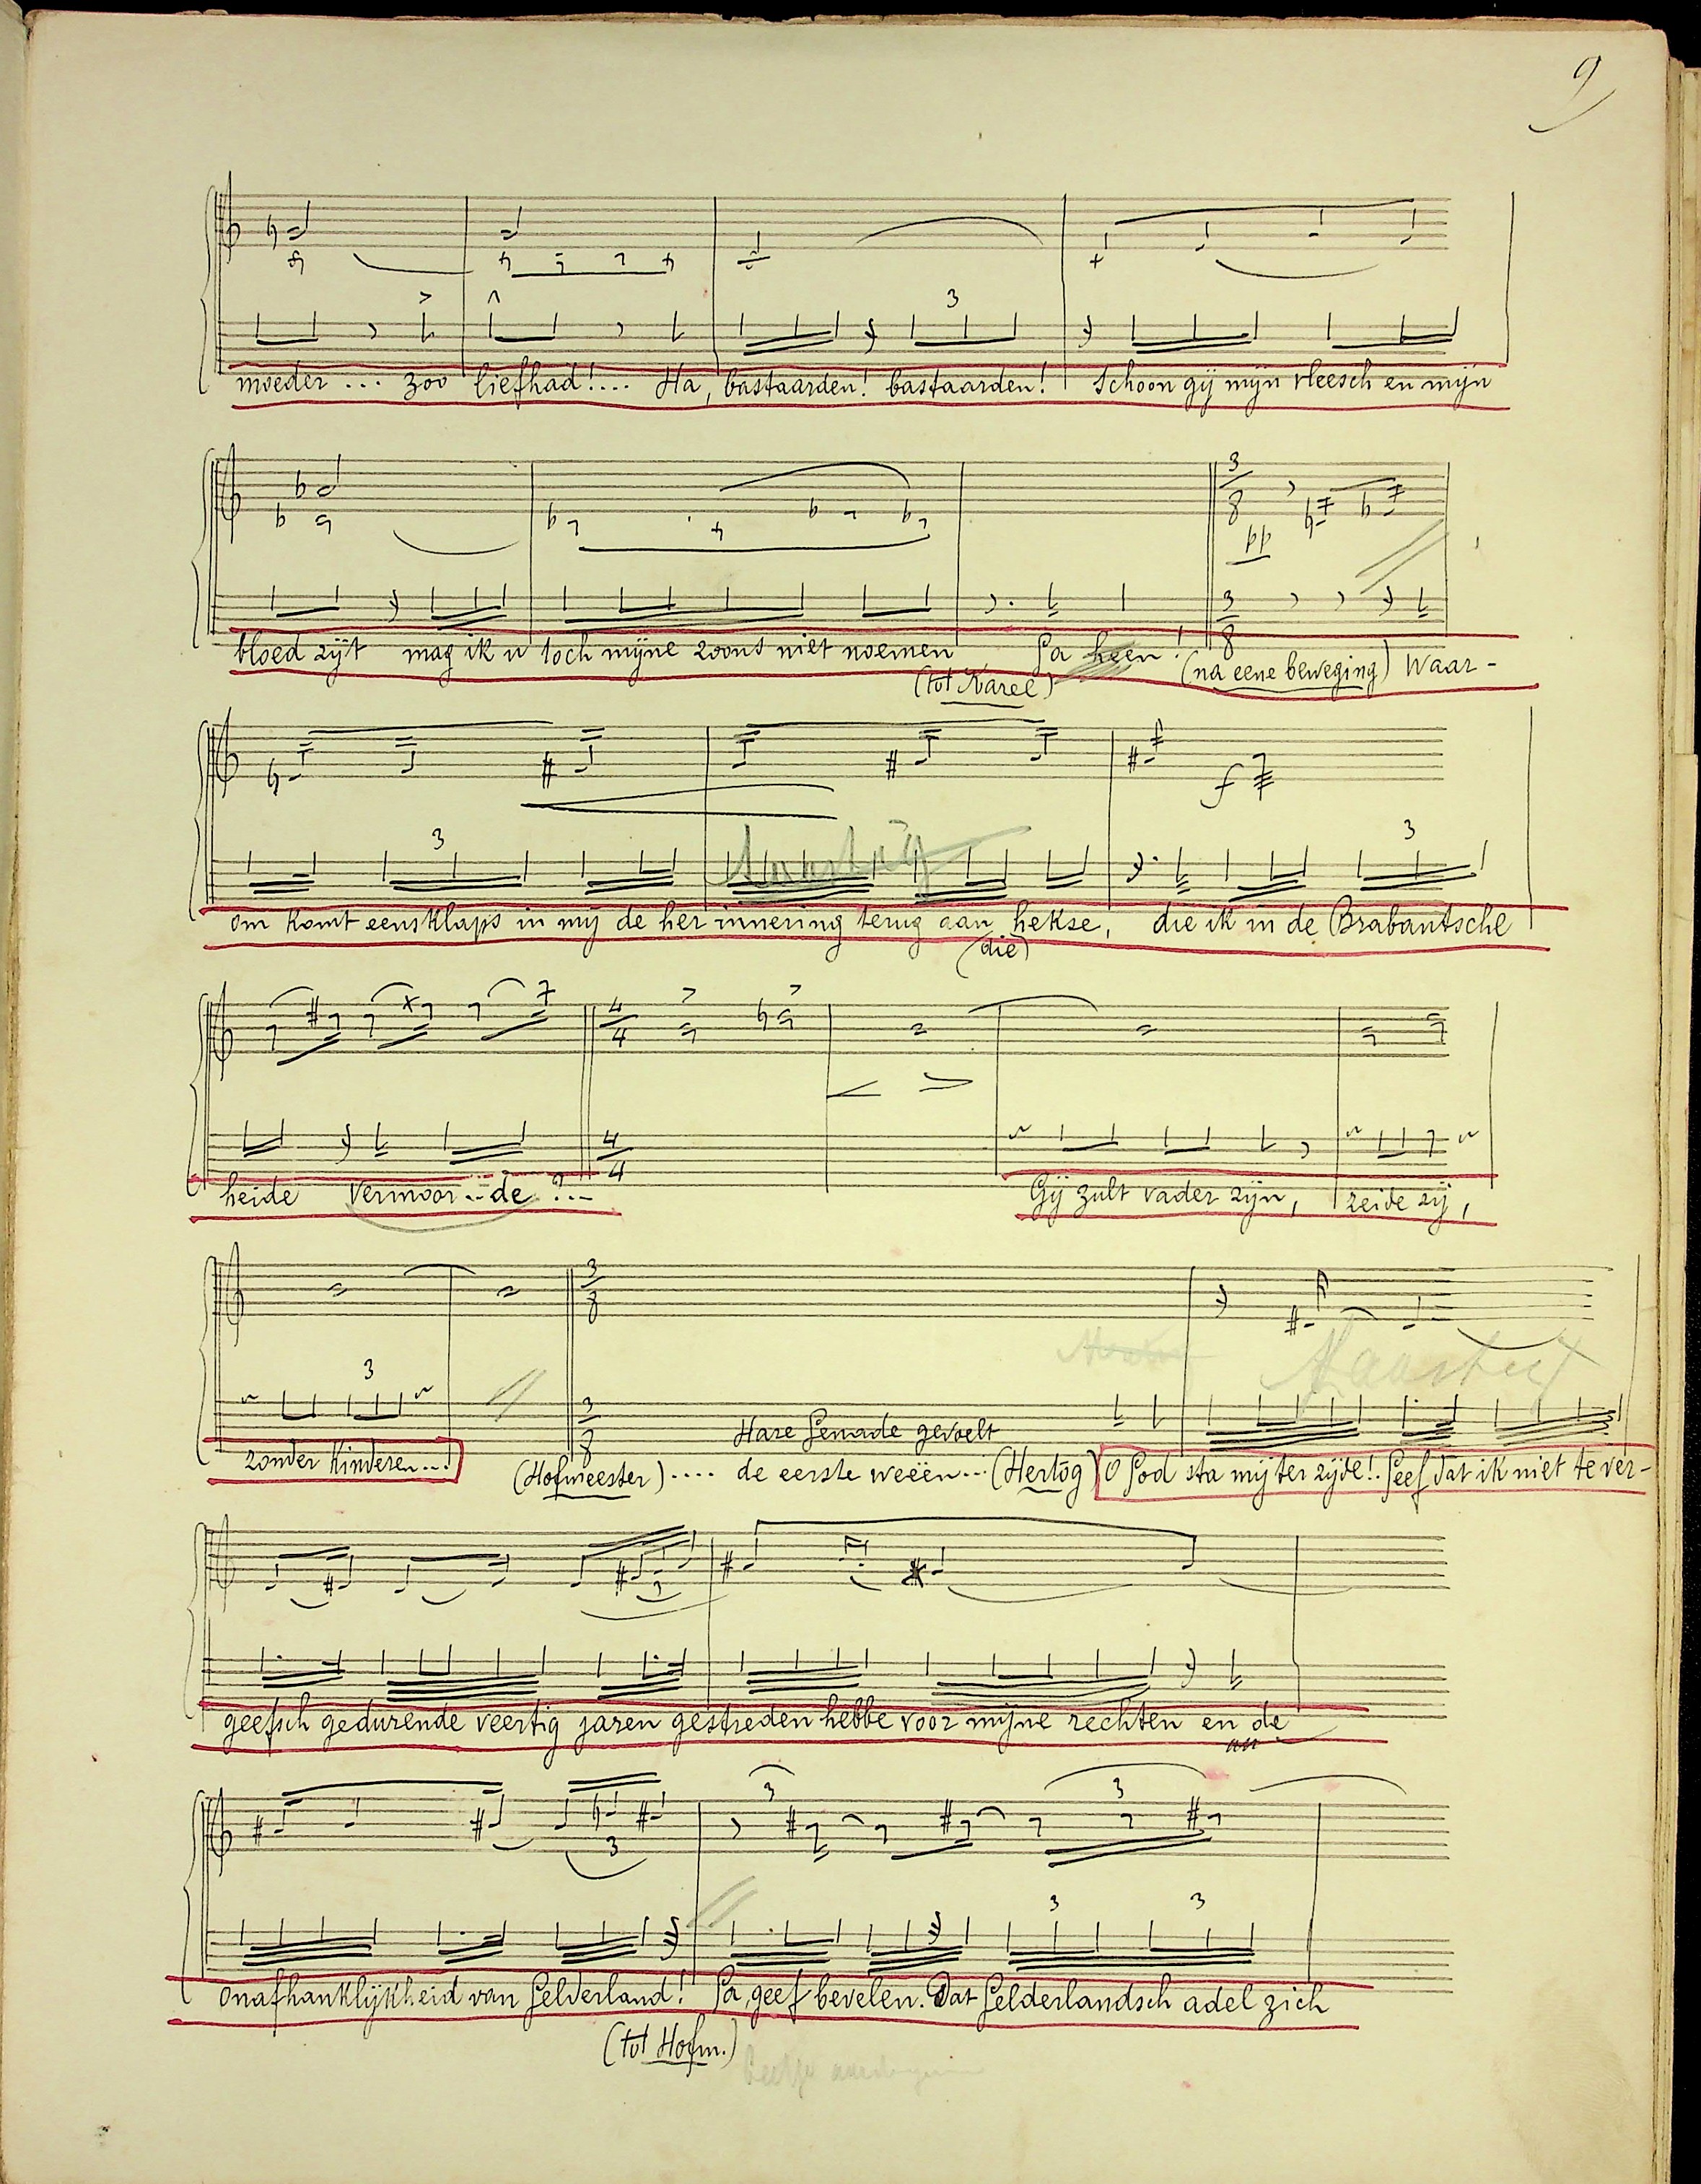 9
3
moeder ... zoo liefhad!... Ha, bastaarden! bastaarden! Schoon gij mijn vleesch en mijn
3 8
pp
3 8
bloed zijt mag ik u toch mijne zoons niet noemen Ga heen! (na eene beweging) Waar-
(tot Karel)
f
3 3
om komt eensklaps in mij de herinnering terug aan hekse, die ik in de Brabantsche
(die)
4 4
4 4
heide vermoor..de ?... Gij zult vader zijn, zeide zij,
3 8
3
3 8
Hare Genade gevoelt
zonder kinderen...! (Hofmeester).... de eerste weeën... (Hertog) O God sta mij ter zijde!. Geef dat ik niet te ver-
3
geefsch gedurende veertig jaren gestreden hebbe voor mijne rechten en de
3 3 3
3 3
onafhanklijkheid van Gelderland! Ga, geef bevelen. Dat Gelderlandsch adel zich
(tot Hofm.)